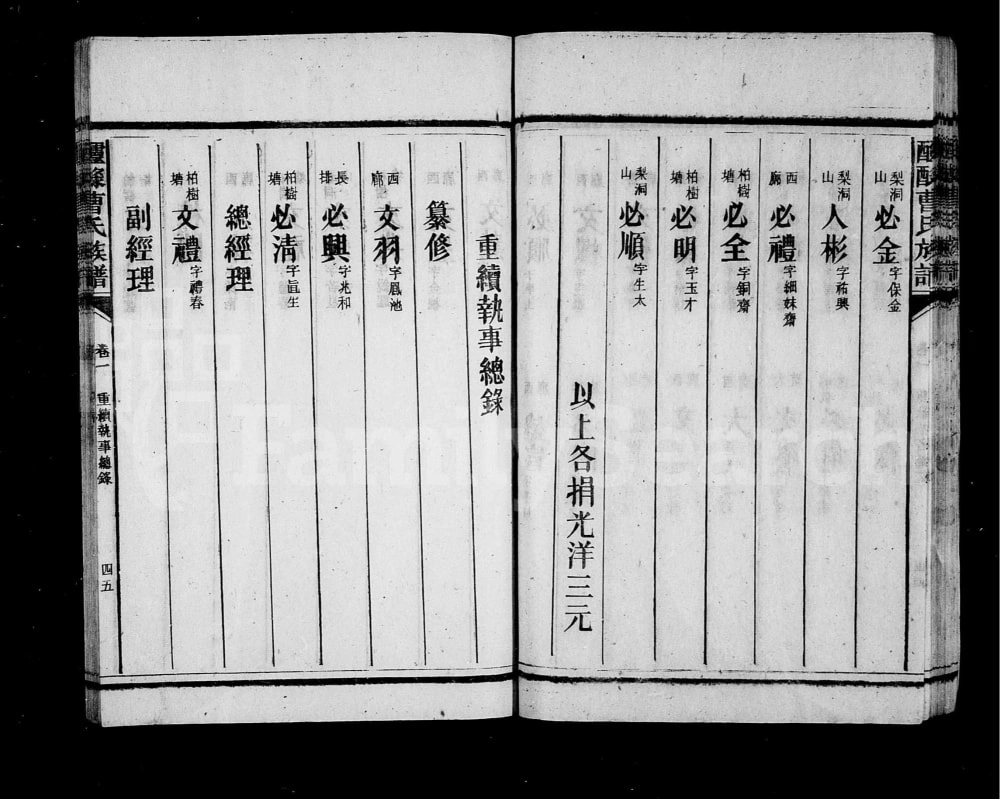 曹氏族譜
梨洞山 必金 字保金
梨洞山 人彬 字祐興
西廊 必禮 字細妹齋
柏樹塘 必全 字銅齋
柏樹塘 必明 字玉才
梨洞山 必順 字生太
以上各捐光洋三元
重續執事總錄
纂修
西廊 文羽 字鳳池
長排 必興 字兆和
柏樹塘 必清 字眞生
總經理
柏樹塘 文禮 字禮春
副經理
曹氏族譜
卷一 重續執事總錄 四五